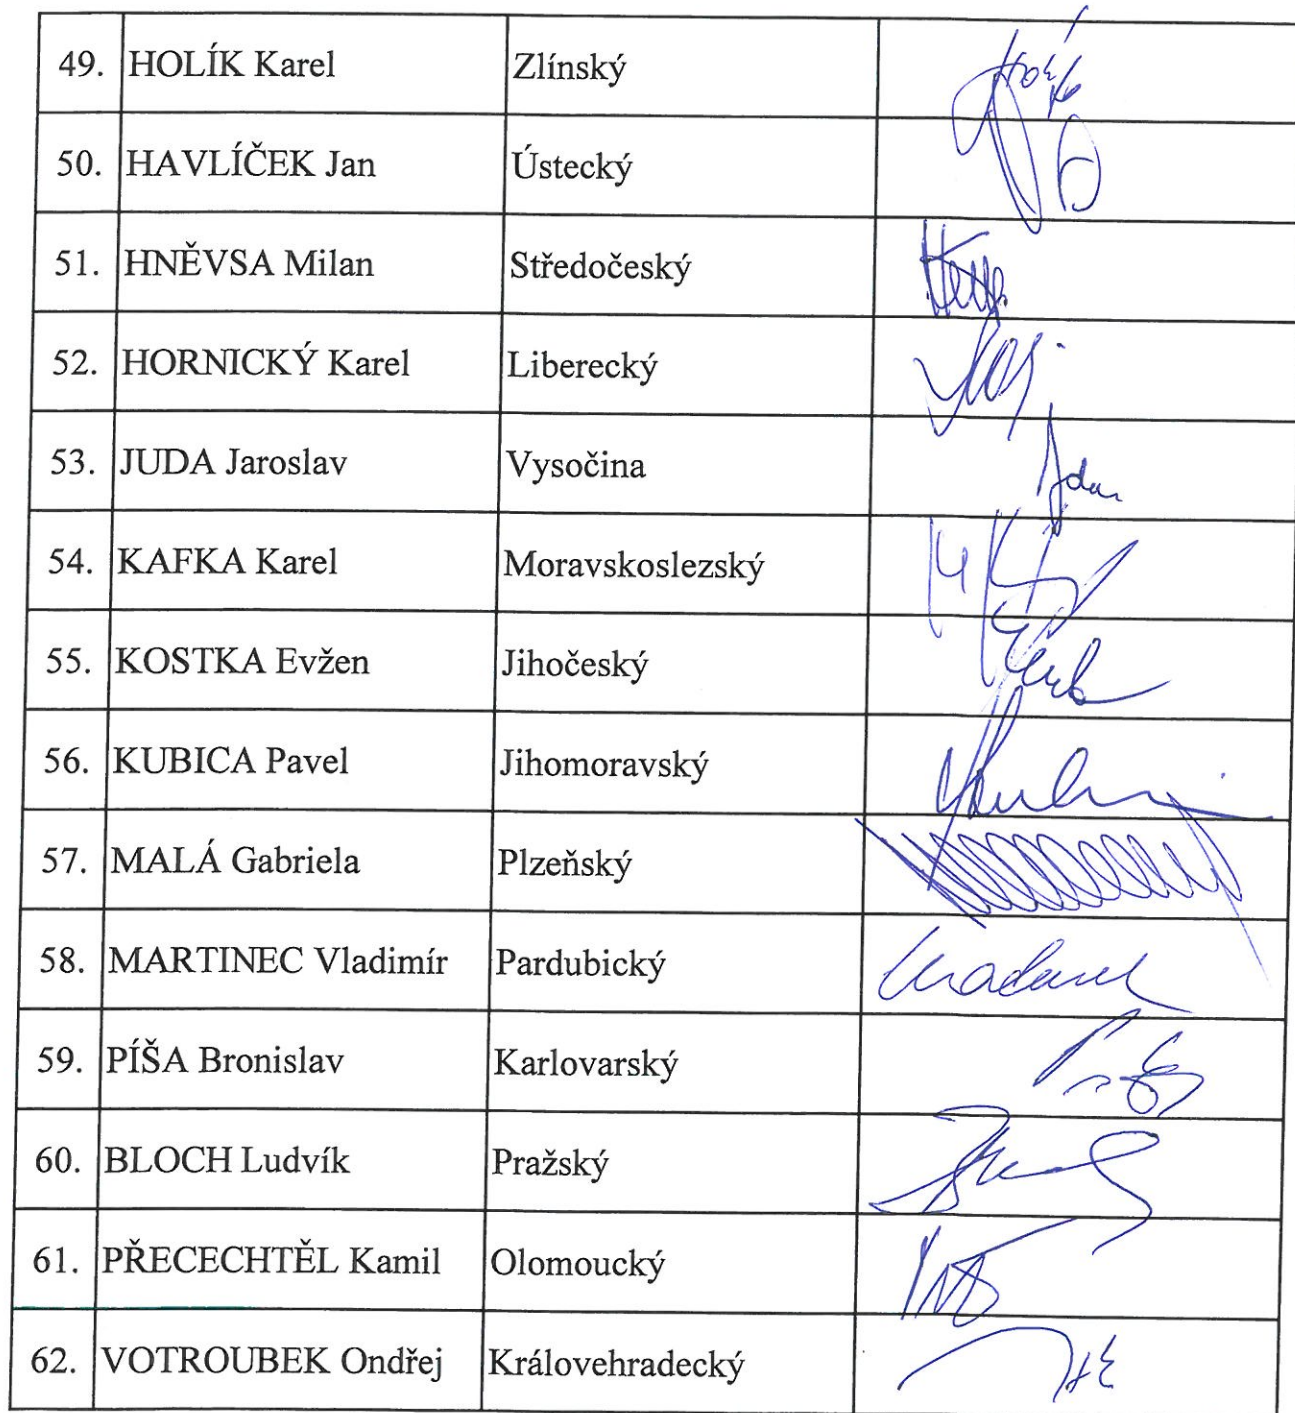 49. HOLÍK Karel Zlínský
50. HAVLÍČEK Jan Ústecký
51. HNĚVSA Milan Středočeský
52. HORNICKÝ Karel Liberecký
53. JUDA Jaroslav Vysočina
54. KAFKA Karel Moravskoslezský
55. KOSTKA Evžen Jihočeský
56. KUBICA Pavel Jihomoravský
57. MALÁ Gabriela Plzeňský
58. MARTINEC Vladimír Pardubický
59. PÍŠA Bronislav Karlovarský
60. BLOCH Ludvík Pražský
61. PŘECECHTĚL Kamil Olomoucký
62. VOTROUBEK Ondřej Královehradecký